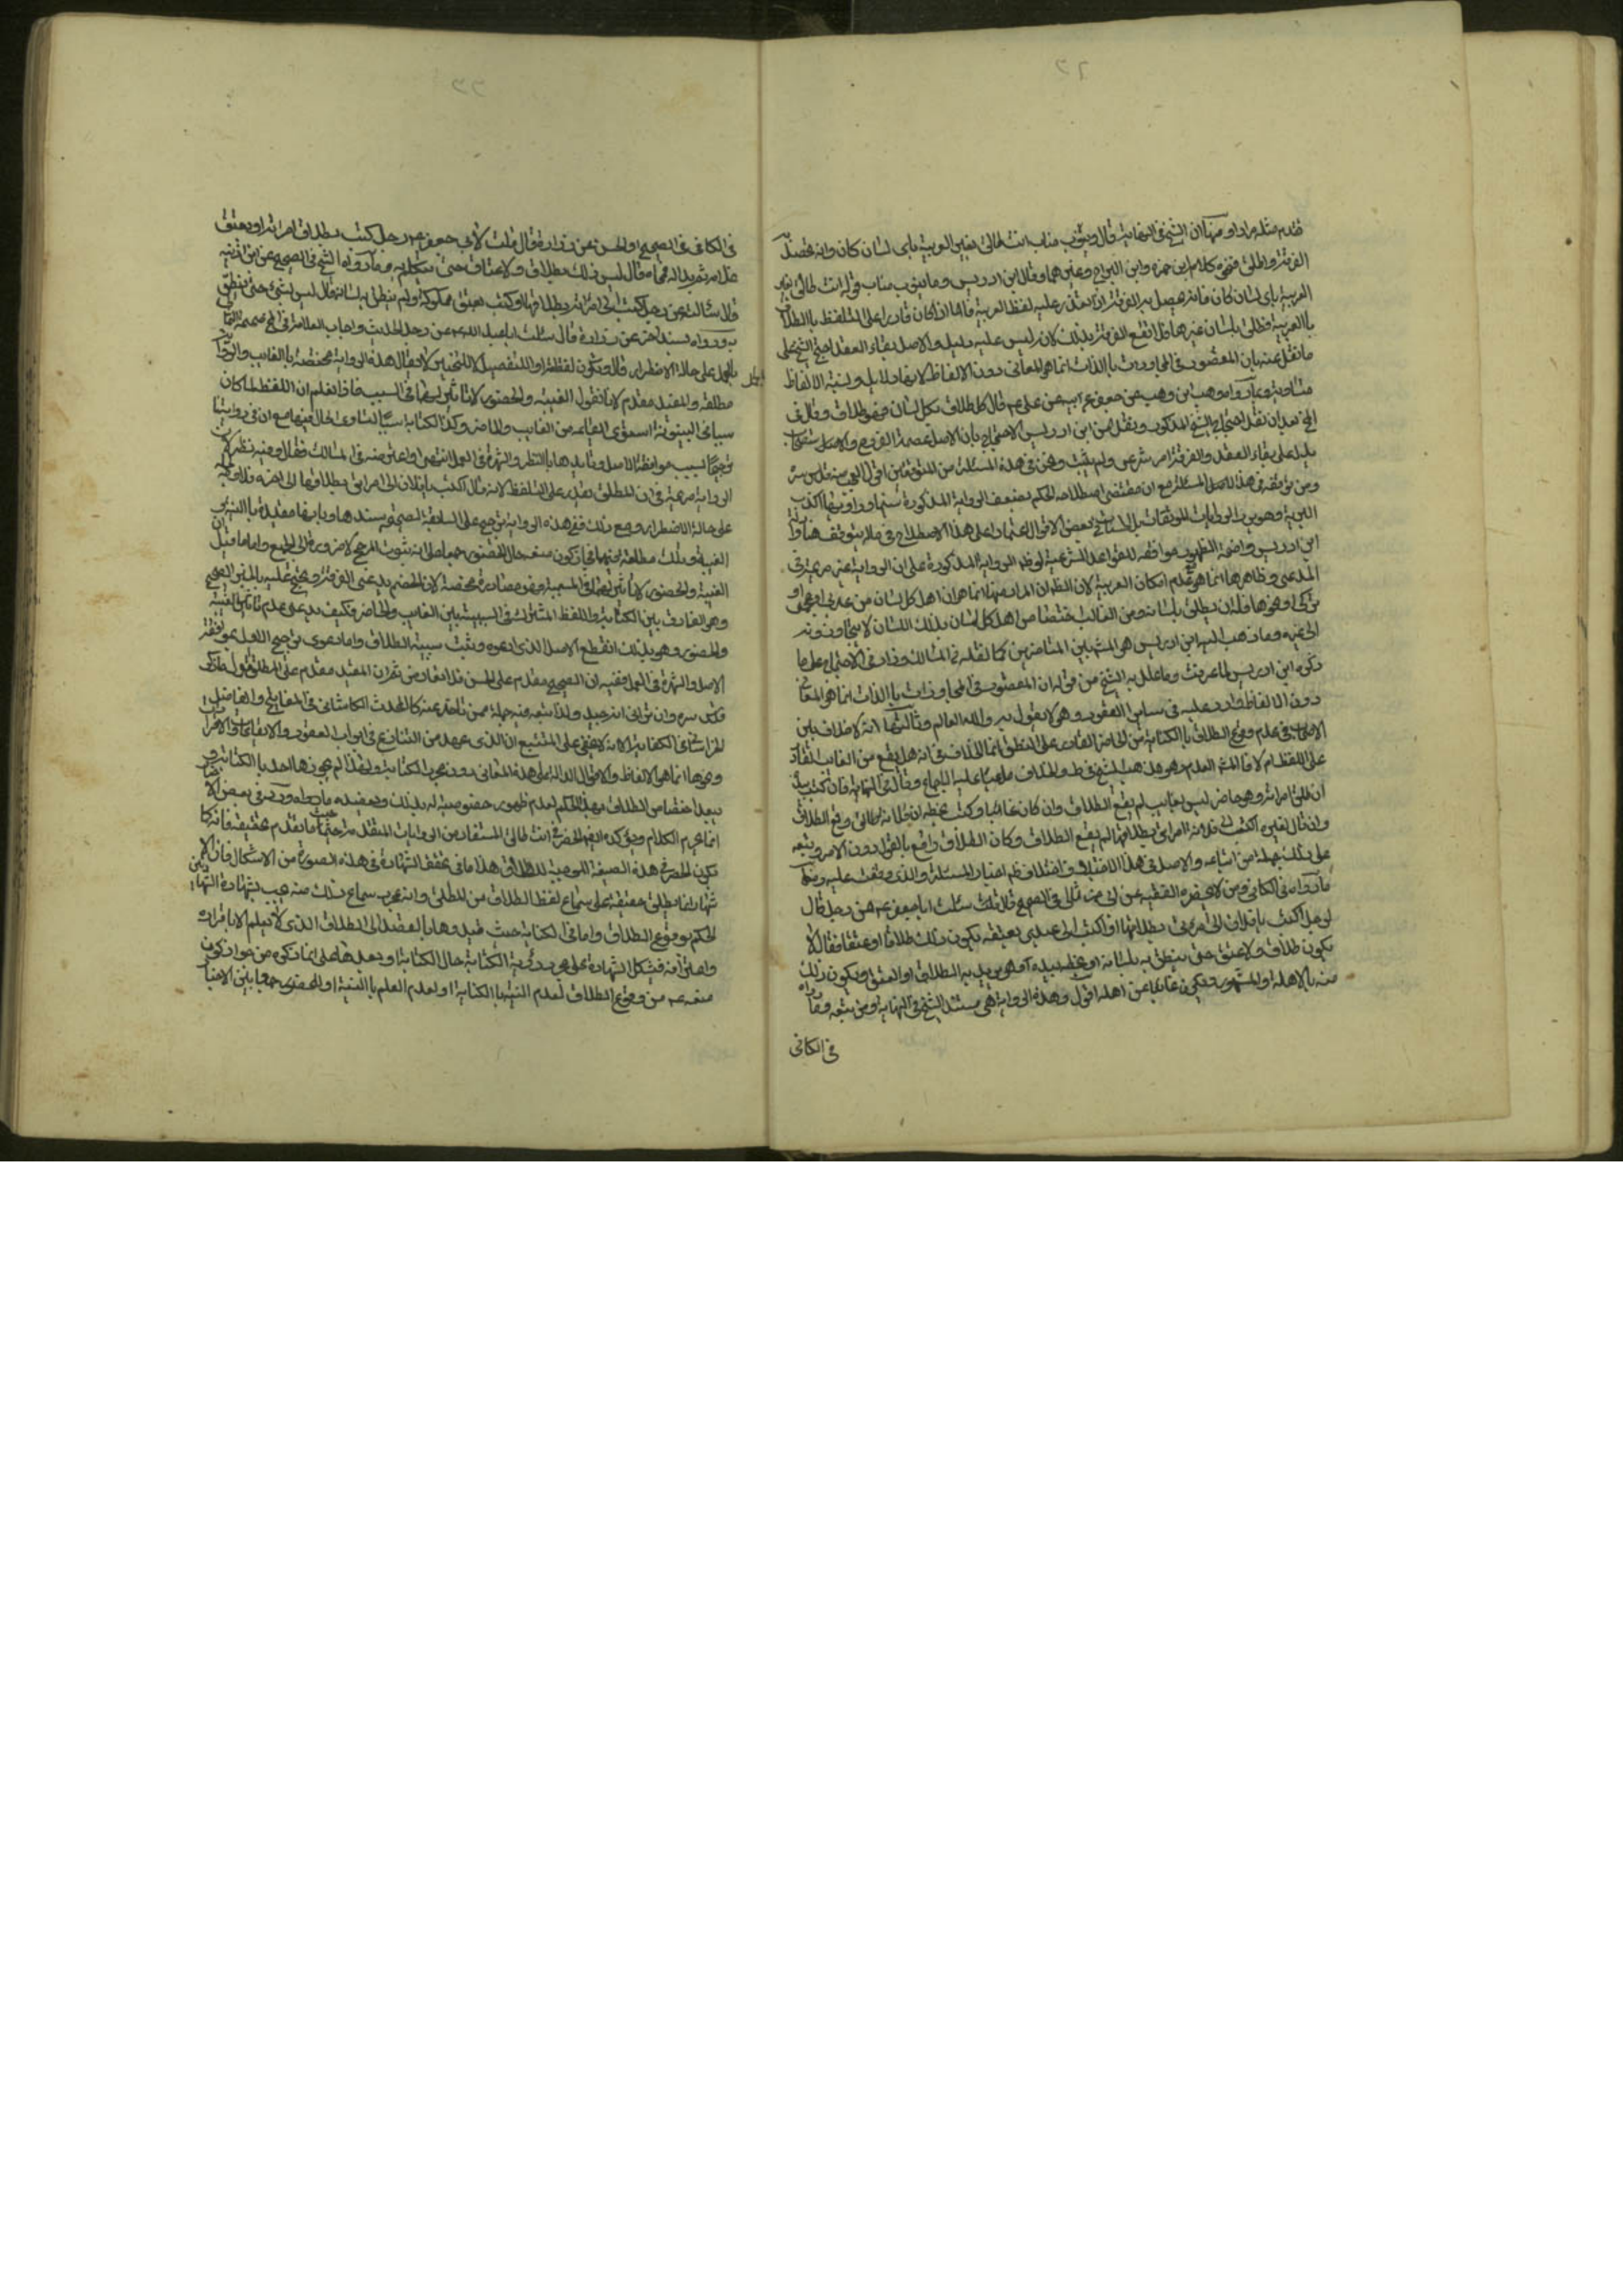 قدم مثله مرارا ومنها ان الشيخ في النهاية قال ويقوم مناب انت طالق بغير العربية باي لسان كان وانه تحصل به
الفرقة واطلق ونحوه كلام ابن حمزه وابن البراج وغيرهما وقال ابن ادريس وما ينوب مناب قوله انت طالق بغير
العربية باي لسان كان فانه يحصل به الفرقة اذا تعذر عليه لفظ العربية فاما اذا كان قادرا على التلفظ بالطلاق
بالعربية فطلق بلسان غيرها فلا تقع الفرقة بذلك لانه ليس عليه دليل والاصل بقاء العقد احتج الشيخ على
ما نقل عنه بان المقصود في المحاورات بالذات انما هو المعاني دون الالفاظ لانها دلايل ونسبة الالفاظ
متساوية وبما رواه وهب بن وهب عن جعفر عن ابيه عن علي ع قال كل طلاق بكل لسان فهو طلاق وقال في
بعد ان نقل احتجاج الشيخ المذكور ونقل عن ابن ادريس الاحتجاج بان الاصل عصمة الفروج والاصل
يدل على بقاء العقد والفرقة امر شرعي ولم يثبت ونحن في هذه المسئلة من المتوقفين اقول العجب منه قدس سره
ومن توقفه في هذه المسئلة مع ان مقتضى اصطلاحه الحكم بضعف الرواية المذكورة سيما وراويها اكذب
البرية وهو يرد الروايات الموثقات بل الاستناد بعض الاقوال اعتمادا على هذا الاصطلاح
ابن ادريس واضحة الظهور موافقة للقواعد الشرعية الرواية المذكورة على ان الرواية غير صريحة في
المدعى وظاهرها انما هو عدم امكان العربية لان الظاهر ان المراد منها انما هو ان اهل كل لسان من عربي او عجمي او
تركي او نحوها فله ان يطلق بلسانه ومن الغالب اختصاص اهل كل لسان بذلك اللسان لا يتجاوزونه
الى غيره وما ذهب اليه ابن ادريس هو المشهور بين المتاخرين كما نقله في المسالك وزاد في الاحتجاج على ما
ذكره ابن ادريس لما عرفت وما علل به الشيخ من قوله ان المقصود في المحاورات بالذات انما هو المعاني
دون الالفاظ وارد عليه في ساير العقود وهو لا يقول به والله العالم وثالثها انه لا خلاف بين
الاصحاب في عدم وقوع الطلاق بالكتابة من الحاضر القادر على النطق انما الخلاف في انه هل يقع من الغائب القادر
على اللفظ ام لا فالمشهور العدم وهو مذهب الشيخ في ط والخلاف مدعيا عليه الاجماع وقال في النهاية فان كتب بيده
ان طلق امراته وهو حاضر ليس بغايب لم يقع الطلاق وان كان غائبا وكتب بخطه ان فلانة طالق وقع الطلاق
وان قال لغيره اكتب الى فلانة امراتي بطلاقها لم يقع الطلاق وكان الطلاق واقع بالقول دون الامر وتبعه
على ذلك جملة من اتباعه والاصل في هذا الاختلاف اختلاف اخبار المسئلة والذي وقفت عليه منها
ما رواه في الكافي ومن لا يحضره الفقيه عن ابي حمزة الثمالي في الصحيح قال سئلت ابا جعفر ع عن رجل قال
لرجل اكتب يا فلان الى امرءتي بطلاقها او اكتب الى عبدي بعتقه يكون ذلك طلاقا او عتقا فقال لا
يكون طلاق ولا عتق حتى ينطق به بلسانه او يخطه بيده وهو يريد به الطلاق او العتق ويكون ذلك
منه بالاهلة والشهود ويكون غائبا عن اهله اقول وهذه الرواية هي مستند الشيخ في النهاية ومن تبعه وما رواه
في الكافي
في الكافي في الصحيح او الحسن عن زرارة قال قلت لابي جعفر ع رجل كتب بطلاق امراته او بعتق
غلامه ثم بدا له فمحاه قال ليس ذلك بطلاق ولا عتاق حتى يتكلم به وما رواه الشيخ في الصحيح عن ابن اذينه
قال سئالته عن رجل كتب الى امراته بطلاقها او كتب بعتق مملوكه ولم ينطق به لسانه قال ليس بشيء حتى ينطق
به ورواه بسند اخر عن زرارة قال سئلت ابا عبد الله ع عن رجل الحديث واجاب العلامة في عن صحيحة الثمالي
بالحمل على حالة الاضطرار قال ويكون لفظة او للتفصيل لا للتخيير لا يقال هذه الرواية مختصة بالغايب والروايه
مطلقة والمقيد مقدم لانا نقول الغيبه والحضور لا تاثير لهما في السبب فاذا نعلم ان اللفظ لما كان
سببا في البينونة استوى القائه من الغايب والحاضر وكذا الكتابة سببا لتساوى الحال فيها مع ان في روايتنا
ترجيحا بسبب موافقة الاصل وتاييدها بالنظر والشهرة في العمل انتهى واعترضه في المسالك فقال وفيه نظر لان
الرواية صريحة في ان المطلق يقدر على التلفظ لانه قال اكتب يا فلان الى امراتي بطلاقها الى اخره فلا وجه لحمله
على حالة الاضطرار ومع ذلك فهذه الرواية ترجح على السابقة بصحة سندها وبانها مقيدة بالغيبه
الغيبة وتلك مطلقة فيجوز ان يكون منعه حال الحضور جمعا على انه بثبوت المرجح لا ضرورة الى الجمع واما ما قيل
الغيبة والحضور لا تاثير لهما في السببية فهو مصادرة محضة لان الخصم يدعي الفرق ويحتج عليه بالخبر الصحيح
وهو الفارق بين الكتابة واللفظ المشترك في السببية بين الغايب والحاضر فكيف يدعي عدم تاثير الغيبة
والحضور وهو بذلك انقطع الاصل الذي ادعوه وثبت سببية الطلاق واما دعوى ترجيح العمل بموافقة
الاصل والشهرة في العمل ففيه ان الصحيح مقدم على الحسن فلا تعارض ثم ان المقيد مقدم على المطلق اقول ما ذكره
قدس سره وان تراءى انه جيد ولذا تبعه فيه جملة ممن تاخر عنه كالمحدث الكاشاني في المفاتيح والفاضل
الخراساني في الكفاية الا انه لا يخفى على المتتبع ان الذي عهد من الشارع في ابواب العقود والايقاعات والاقرارات
ونحوها انما هو الالفاظ والاقوال الدالة على هذه المعاني دون مجرد الكتابة ولهذا لم يجوزها احد بالكتابة
يبعد اختصاص الطلاق بهذا الحكم لعدم ظهور خصوصية له بذلك ويعضده ما رواه وورد في بعض الاخبار
انما يحرم الكلام ويؤكده ايضا الحصر في انت طالق المستفاد من الروايات المتقدمة حسبما تقدم تحقيقه فانه كما
يكون الحصر في هذه الصيغة الموجبة للطلاق هذا مافي تحقق الشهادة في هذه الصورة من الاشكال فان الا
شهاد انما يطلق حقيقة على سماع لفظ الطلاق من المطلق وانه بمجرد سماع ذلك منه يجب بشهادة الشهادتين
الحكم بوقوع الطلاق واما في الكتابة حيث قيدوها بالقصد الى الطلاق الذي لا يعلم الا باقراره
واعترافه فيشكل الشهادة على مجرد رؤية الكتابة حال الكتابة وبعدها على ما ذكره من جواز كون
منعه ع من وقوع الطلاق لعدم النية بالكتابة او لعدم العلم بالنية او الحضور جمعا بين الاخبار